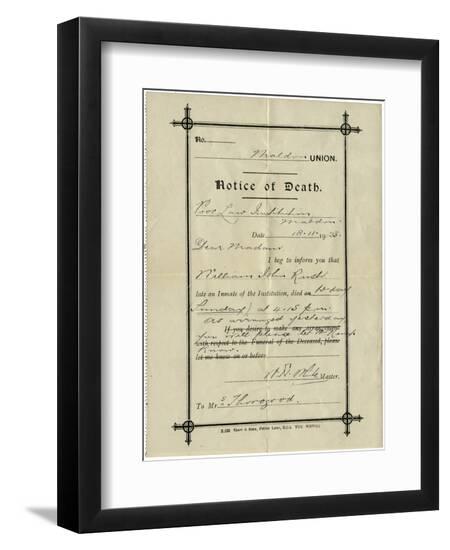 No.
Maldon UNION.
Notice of Death.
Poor Law Institution
Maldon
Date 18.11.19
Dear Madam
I beg to inform you that
William John
late an Inmate of the Institution, died on to-day
Sunday at 4.15 p.m.
As arranged yesterday
If you desire to make any arrangement
you will please let Mr
with respect to the Funeral of the Deceased, please
know.
let me know on or before
Master.
To Mrs Thorogood.